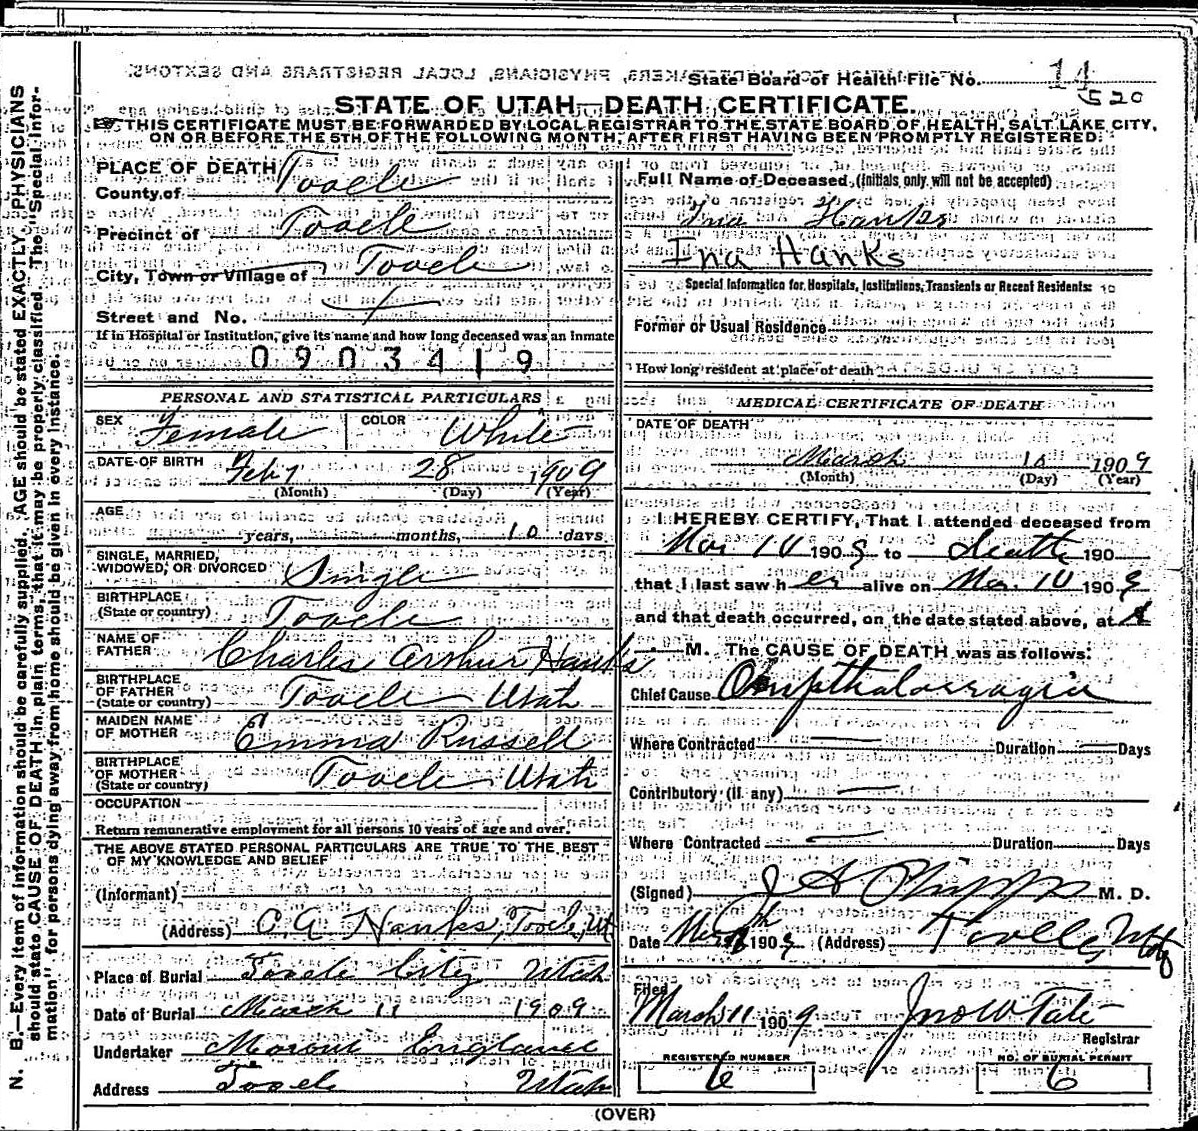 State Board of Health File No. 14
520
STATE OF UTAH—DEATH CERTIFICATE.
THIS CERTIFICATE MUST BE FORWARDED BY LOCAL REGISTRAR TO THE STATE BOARD OF HEALTH, SALT LAKE CITY,
ON OR BEFORE THE 5TH OF THE FOLLOWING MONTH, AFTER FIRST HAVING BEEN PROMPTLY REGISTERED.
N. B.—Every item of information should be carefully supplied. AGE should be stated EXACTLY. PHYSICIANS
should state CAUSE OF DEATH in plain terms, that it may be properly classified. The "Special Infor-
mation" for persons dying away from home should be given in every instance.
PLACE OF DEATH
County of Tooele
Precinct of Tooele
City, Town or Village of Tooele
Street and No.
If in Hospital or Institution, give its name and how long deceased was an inmate
0903419
PERSONAL AND STATISTICAL PARTICULARS
SEX Female COLOR White
DATE OF BIRTH Feby 28 1909
(Month) (Day) (Year)
AGE
years, months, 10 days
SINGLE, MARRIED,
WIDOWED, OR DIVORCED Single
BIRTHPLACE
(State or country) Tooele
NAME OF
FATHER Charles Arthur Hanks
BIRTHPLACE
OF FATHER
(State or country) Tooele Utah
MAIDEN NAME
OF MOTHER Emma Russell
BIRTHPLACE
OF MOTHER
(State or country) Tooele Utah
OCCUPATION
Return remunerative employment for all persons 10 years of age and over.
THE ABOVE STATED PERSONAL PARTICULARS ARE TRUE TO THE BEST
OF MY KNOWLEDGE AND BELIEF
(Informant)
(Address) C. A. Hanks, Tooele, Ut
Place of Burial Tooele City Utah
Date of Burial March 11 1909
Undertaker
Address Tooele Utah
Full Name of Deceased, (initials only will not be accepted)
Ina Hanks
Ina Hanks
Special Information for Hospitals, Institutions, Transients or Recent Residents:
Former or Usual Residence
How long resident at place of death
MEDICAL CERTIFICATE OF DEATH
DATE OF DEATH
March 10 1909
(Month) (Day) (Year)
I HEREBY CERTIFY, That I attended deceased from
Mar 10 1909 to death 190
that I last saw her alive on Mar. 10 1909
and that death occurred, on the date stated above, at
M. The CAUSE OF DEATH was as follows:
Chief Cause
Where Contracted Duration Days
Contributory (if any)
Where Contracted Duration Days
(Signed) J A Phipps M. D.
Date 1909 (Address) Tooele, Utah
Filed
March 11 1909 Jno W Tate
Registrar
REGISTERED NUMBER
6
NO. OF BURIAL PERMIT
6
(OVER)